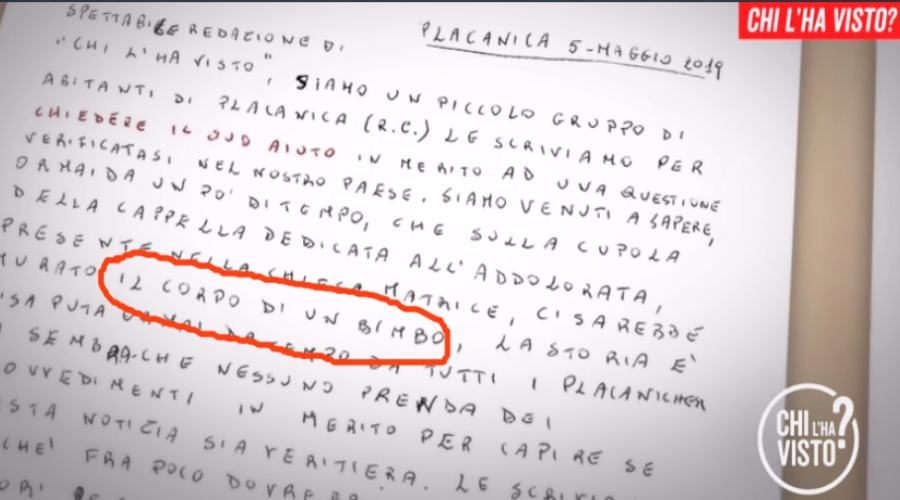 CHI L'HA VISTO?
PLACANICA 5-MAGGIO 2019
SPETTABILE REDAZIONE DI
"CHI L'HA VISTO", SIAMO UN PICCOLO GRUPPO DI
ABITANTI DI PLACANICA (R.C.) LE SCRIVIAMO PER
CHIEDERE IL SUO AIUTO IN MERITO AD UNA QUESTIONE
VERIFICATASI NEL NOSTRO PAESE. SIAMO VENUTI A SAPERE,
ORMAI DA UN PO' DI TEMPO, CHE SULLA CUPOLA
DELLA CAPPELLA DEDICATA ALL'ADDOLORATA,
PRESENTE NELLA CHIESA MATRICE, CI SAREBBE
MURATO IL CORPO DI UN BIMBO, LA STORIA E'
SAPUTA ORMAI DA TEMPO DA TUTTI I PLACANICHER
SEMBRA CHE NESSUNO PRENDA DEI
OVVEDIMENTI IN MERITO PER CAPIRE SE
ESTA NOTIZIA SIA VERITIERA. LE SCRIVIA
CHE' FRA POCO DOVREB
CHI L'HA VISTO?